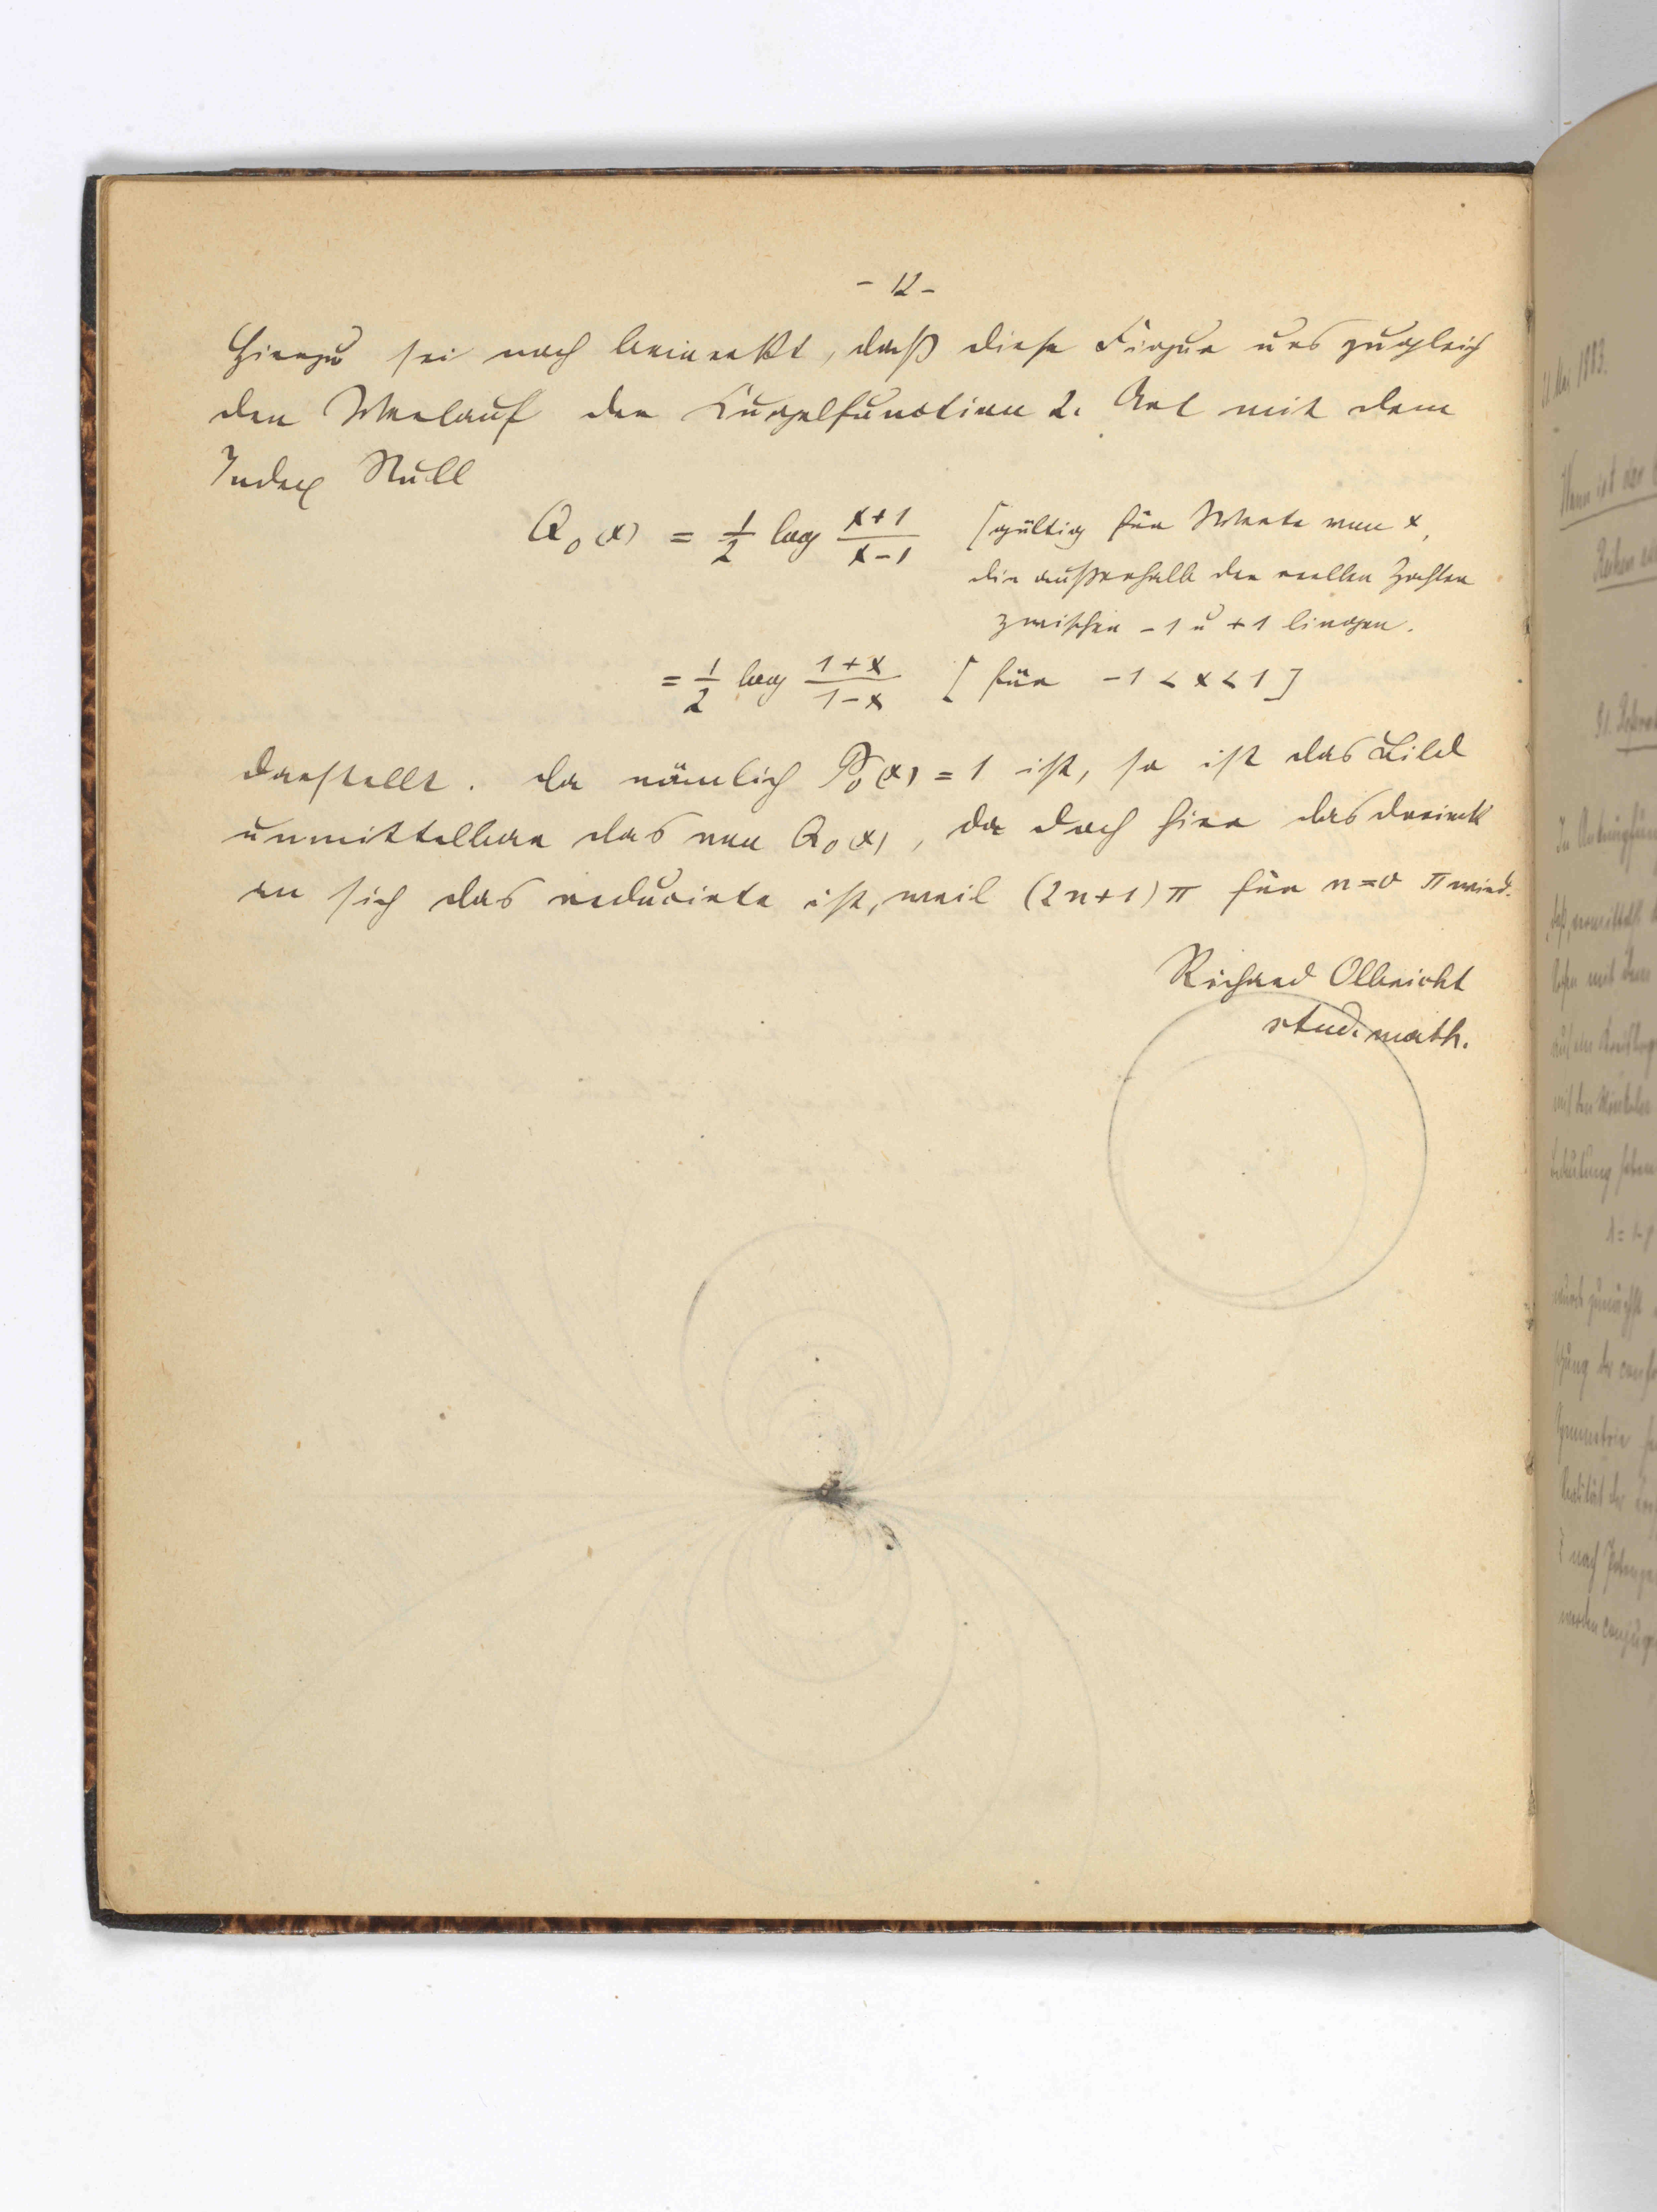 - 12 -
Hierzu sei noch bemerkt, daß diese Figur uns zugleich
den Verlauf der Kugelfunction 2. Art mit dem
Index Null
Q₀(x) = 1/2 log (x+1)/(x-1) [gültig für Werte von x,
die außerhalb der reellen Zahlen
zwischen -1 u +1 liegen.
= 1/2 log (1+x)/(1-x) [für -1 < x < 1]
darstellt. Da nämlich P₀(x) = 1 ist, so ist das Bild
unmittelbar das von Q₀(x), da doch hier das Dreieck
an sich das reducirte ist, weil (2n+1)π für n=0 π wird.
Richard Olbricht
stud. math.